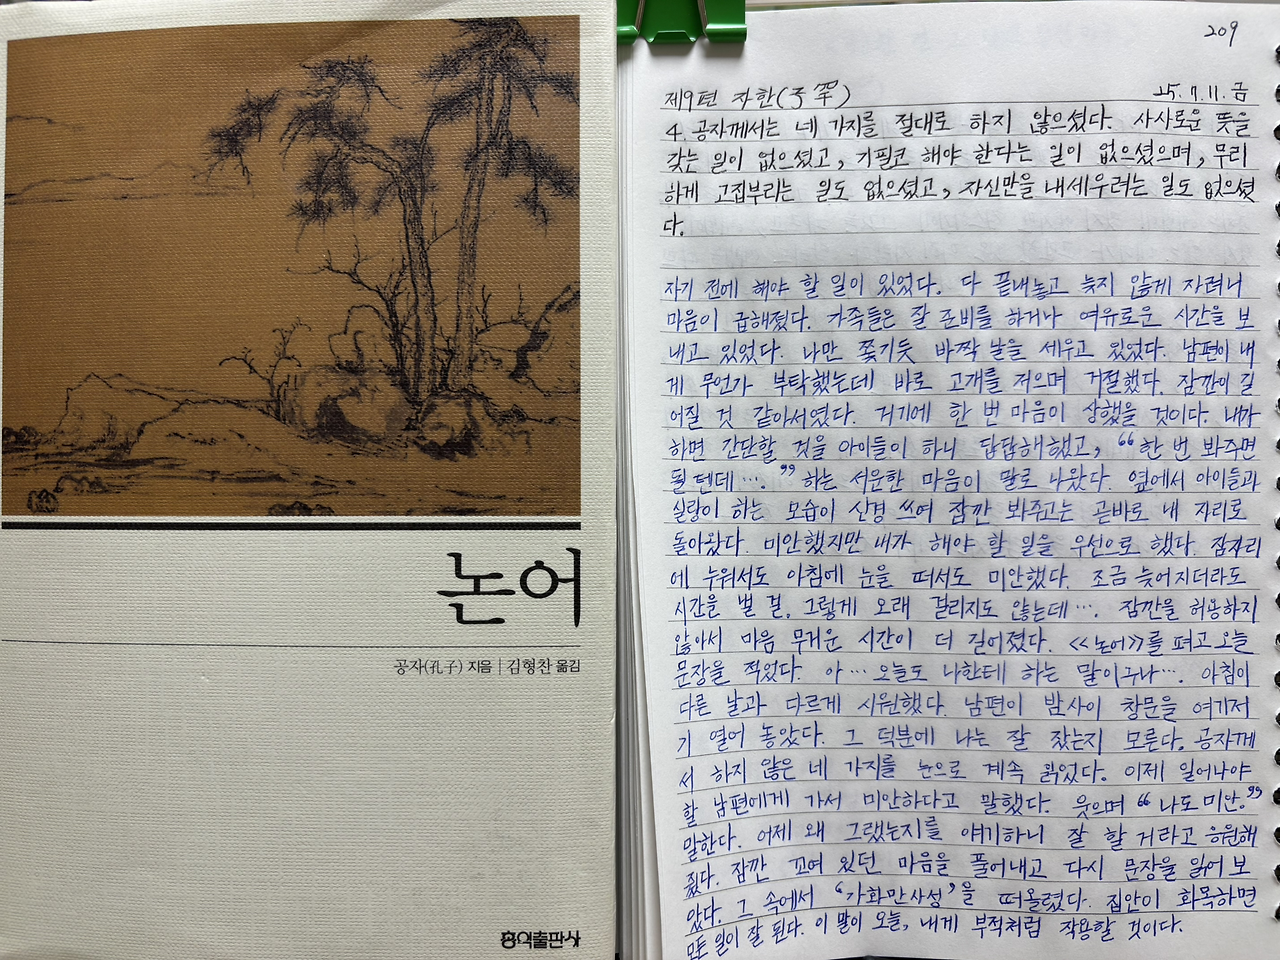 논어
공자(孔子) 지음 | 김형찬 옮김
홍익출판사
209
제9편 자한(子罕) 25.7.11.금
4. 공자께서는 네 가지를 절대로 하지 않으셨다. 사사로운 뜻을
갖는 일이 없으셨고, 기필코 해야 한다는 일이 없으셨으며, 무리
하게 고집부리는 일도 없으셨고, 자신만을 내세우려는 일도 없으셨
다.
자기 전에 해야 할 일이 있었다. 다 끝내놓고 늦지 않게 자려니
마음이 급해졌다. 가족들은 잘 준비를 하거나 여유로운 시간을 보
내고 있었다. 나만 쫓기듯 바짝 날을 세우고 있었다. 남편이 내
게 무언가 부탁했는데 바로 고개를 저으며 거절했다. 잠깐이 길
어질 것 같아서였다. 거기에 한 번 마음이 상했을 것이다. 내가
하면 간단할 것을 아이들이 하니 답답해했고, “한 번 봐주면
될텐데….” 하는 서운한 마음이 말로 나왔다. 옆에서 아이들과
실랑이 하는 모습이 신경 쓰여 잠깐 봐주고는 곧바로 내 자리로
돌아왔다. 미안했지만 내가 해야 할 일을 우선으로 했다. 잠자리
에 누워서도 아침에 눈을 떠서도 미안했다. 조금 늦어지더라도
시간을 벌 걸, 그렇게 오래 걸리지도 않는데…. 잠깐을 허용하지
않아서 마음 무거운 시간이 더 길어졌다. <<논어>>를 펴고 오늘
문장을 적었다. 아… 오늘도 나한테 하는 말이구나…. 아침이
다른 날과 다르게 시원했다. 남편이 밤사이 창문을 여기저
기 열어 놓았다. 그 덕분에 나는 잘 잤는지 모른다. 공자께
서 하지 않은 네 가지를 눈으로 계속 읽었다. 이제 일어나야
할 남편에게 가서 미안하다고 말했다. 웃으며 “나도 미안.”
말한다. 어제 왜 그랬는지를 얘기하니 잘 할 거라고 응원해
줬다. 잠깐 꼬여 있던 마음을 풀어내고 다시 문장을 읽어 보
았다. 그 속에서 ‘가화만사성’을 떠올렸다. 집안이 화목하면
모든 일이 잘 된다. 이 말이 오늘, 내게 부적처럼 작용할 것이다.